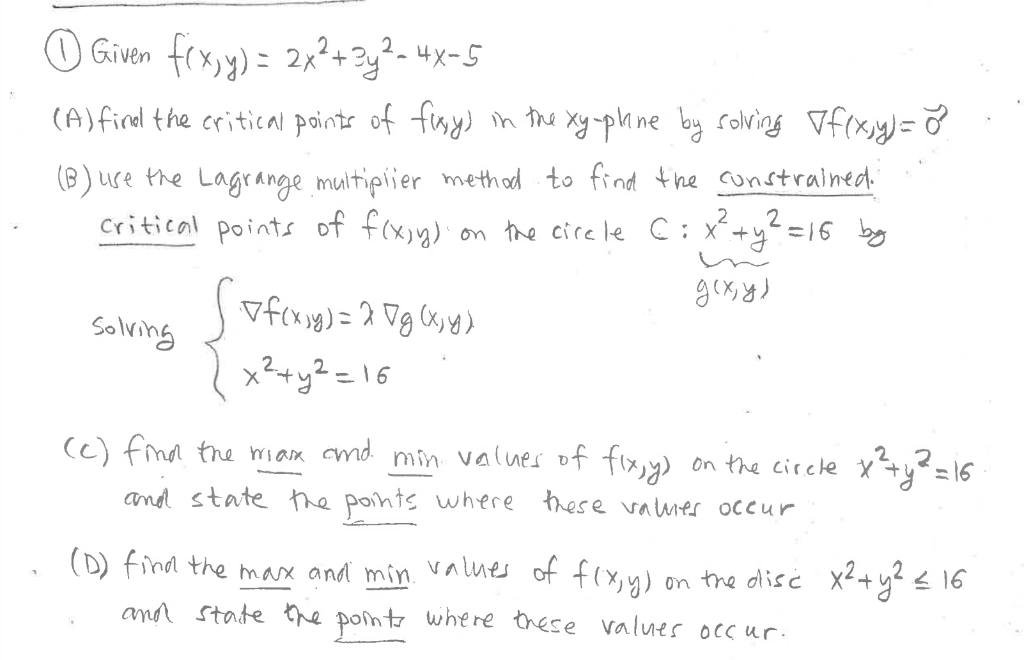 ① Given f(x,y) = 2x²+3y²-4x-5
(A) find the critical points of f(x,y) in the xy-plane by solving ∇f(x,y)=0⃗
(B) use the Lagrange multiplier method to find the constrained
critical points of f(x,y) on the circle C: x²+y²=16 by
g(x,y)
Solving { ∇f(x,y)=λ∇g(x,y)
x²+y²=16
(C) find the max and min values of f(x,y) on the circle x²+y²=16
and state the points where these values occur
(D) find the max and min values of f(x,y) on the disc x²+y² ≤ 16
and state the points where these values occur.